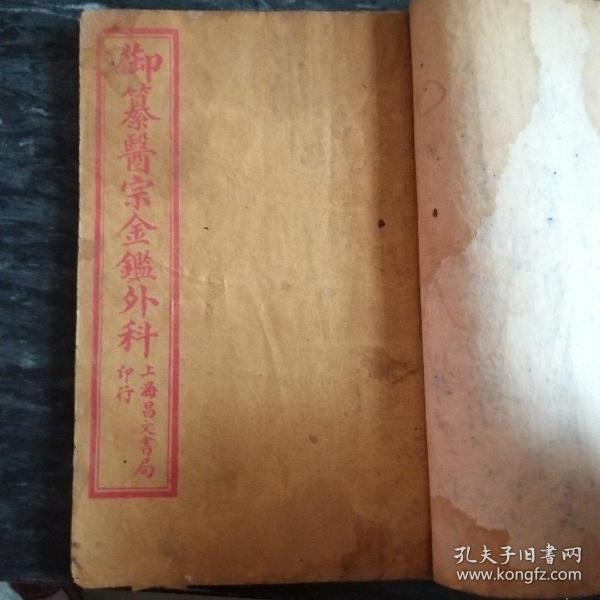 御纂醫宗金鑑外科
上海昌文書局
印行
孔夫子旧书网
www.kongfz.com